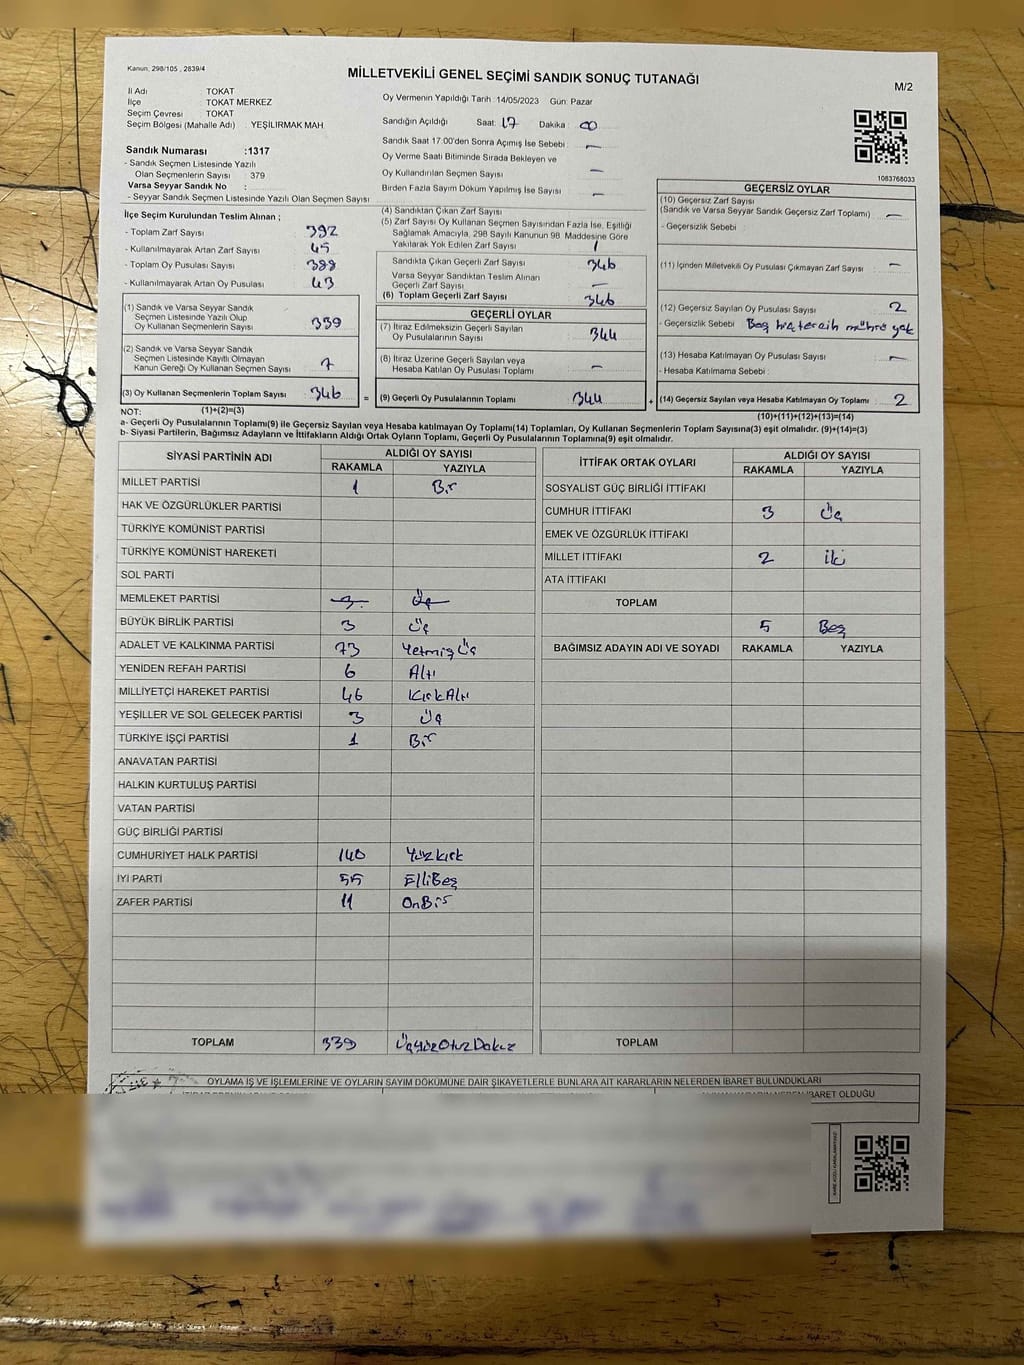 Kanun, 298/105 , 2839/4
MİLLETVEKİLİ GENEL SEÇİMİ SANDIK SONUÇ TUTANAĞI
M/2
İl Adı TOKAT
İlçe TOKAT MERKEZ
Seçim Çevresi TOKAT
Seçim Bölgesi (Mahalle Adı) : YEŞİLIRMAK MAH.
Sandık Numarası :1317
- Sandık Seçmen Listesinde Yazılı
Olan Seçmenlerin Sayısı : 379
Varsa Seyyar Sandık No :
- Seyyar Sandık Seçmen Listesinde Yazılı Olan Seçmen Sayısı
Oy Vermenin Yapıldığı Tarih :14/05/2023 Gün: Pazar
Sandığın Açıldığı Saat: 17 Dakika : 00
Sandık Saat 17:00'den Sonra Açımış İse Sebebi : —
Oy Verme Saati Bitiminde Sırada Bekleyen ve
Oy Kullandırılan Seçmen Sayısı : —
Birden Fazla Sayım Döküm Yapılmış İse Sayısı : —
1083768033
İlçe Seçim Kurulundan Teslim Alınan ;
- Toplam Zarf Sayısı : 392
- Kullanılmayarak Artan Zarf Sayısı : 45
- Toplam Oy Pusulası Sayısı : 388
- Kullanılmayarak Artan Oy Pusulası : 43
(1) Sandık ve Varsa Seyyar Sandık
Seçmen Listesinde Yazılı Olup
Oy Kullanan Seçmenlerin Sayısı : 339
(2) Sandık ve Varsa Seyyar Sandık
Seçmen Listesinde Kayıtlı Olmayan
Kanun Gereği Oy Kullanan Seçmen Sayısı : 7
(3) Oy Kullanan Seçmenlerin Toplam Sayısı : 346
(4) Sandıktan Çıkan Zarf Sayısı
(5) Zarf Sayısı Oy Kullanan Seçmen Sayısından Fazla İse, Eşitliği
Sağlamak Amacıyla, 298 Sayılı Kanunun 98. Maddesine Göre
Yakılarak Yok Edilen Zarf Sayısı : 1
Sandıkta Çıkan Geçerli Zarf Sayısı : 346
Varsa Seyyar Sandıktan Teslim Alınan
Geçerli Zarf Sayısı : —
(6) Toplam Geçerli Zarf Sayısı : 346
GEÇERLİ OYLAR
(7) İtiraz Edilmeksizin Geçerli Sayılan
Oy Pusulalarının Sayısı : 344
(8) İtiraz Üzerine Geçerli Sayılan veya
Hesaba Katılan Oy Pusulası Toplamı : —
= (9) Geçerli Oy Pusulalarının Toplamı : 344 +
GEÇERSİZ OYLAR
(10) Geçersiz Zarf Sayısı
(Sandık ve Varsa Seyyar Sandık Geçersiz Zarf Toplamı) : —
- Geçersizlik Sebebi :
(11) İçinden Milletvekili Oy Pusulası Çıkmayan Zarf Sayısı : —
(12) Geçersiz Sayılan Oy Pusulası Sayısı : 2
- Geçersizlik Sebebi : Boş tercih mührü yok
(13) Hesaba Katılmayan Oy Pusulası Sayısı : —
- Hesaba Katılmama Sebebi :
(14) Geçersiz Sayılan veya Hesaba Katılmayan Oy Toplamı : 2
NOT: (1)+(2)=(3)
(10)+(11)+(12)+(13)=(14)
a- Geçerli Oy Pusulalarının Toplamı(9) ile Geçersiz Sayılan veya Hesaba katılmayan Oy Toplamı(14) Toplamları, Oy Kullanan Seçmenlerin Toplam Sayısına(3) eşit olmalıdır. (9)+(14)=(3)
b- Siyasi Partilerin, Bağımsız Adayların ve İttifakların Aldığı Ortak Oyların Toplamı, Geçerli Oy Pusulalarının Toplamına(9) eşit olmalıdır.
SİYASİ PARTİNİN ADI ALDIĞI OY SAYISI
RAKAMLA YAZIYLA
MİLLET PARTİSİ 1 Bir
HAK VE ÖZGÜRLÜKLER PARTİSİ
TÜRKİYE KOMÜNİST PARTİSİ
TÜRKİYE KOMÜNİST HAREKETİ
SOL PARTİ
MEMLEKET PARTİSİ 3 Üç
BÜYÜK BİRLİK PARTİSİ 3 Üç
ADALET VE KALKINMA PARTİSİ 73 Yetmiş Üç
YENİDEN REFAH PARTİSİ 6 Altı
MİLLİYETÇİ HAREKET PARTİSİ 46 Kırk Altı
YEŞİLLER VE SOL GELECEK PARTİSİ 3 Üç
TÜRKİYE İŞÇİ PARTİSİ 1 Bir
ANAVATAN PARTİSİ
HALKIN KURTULUŞ PARTİSİ
VATAN PARTİSİ
GÜÇ BİRLİĞİ PARTİSİ
CUMHURİYET HALK PARTİSİ 140 Yüzkırk
İYİ PARTİ 55 ElliBeş
ZAFER PARTİSİ 11 OnBir
TOPLAM 339 ÜçyüzOtuzDokuz
İTTİFAK ORTAK OYLARI ALDIĞI OY SAYISI
RAKAMLA YAZIYLA
SOSYALİST GÜÇ BİRLİĞİ İTTİFAKI
CUMHUR İTTİFAKI 3 Üç
EMEK VE ÖZGÜRLÜK İTTİFAKI
MİLLET İTTİFAKI 2 iki
ATA İTTİFAKI
TOPLAM
5 Beş
BAĞIMSIZ ADAYIN ADI VE SOYADI RAKAMLA YAZIYLA
TOPLAM
OYLAMA İŞ VE İŞLEMLERİNE VE OYLARIN SAYIM DÖKÜMÜNE DAİR ŞİKAYETLERLE BUNLARA AİT KARARLARIN NELERDEN İBARET BULUNDUKLARI
İBARET OLDUĞU